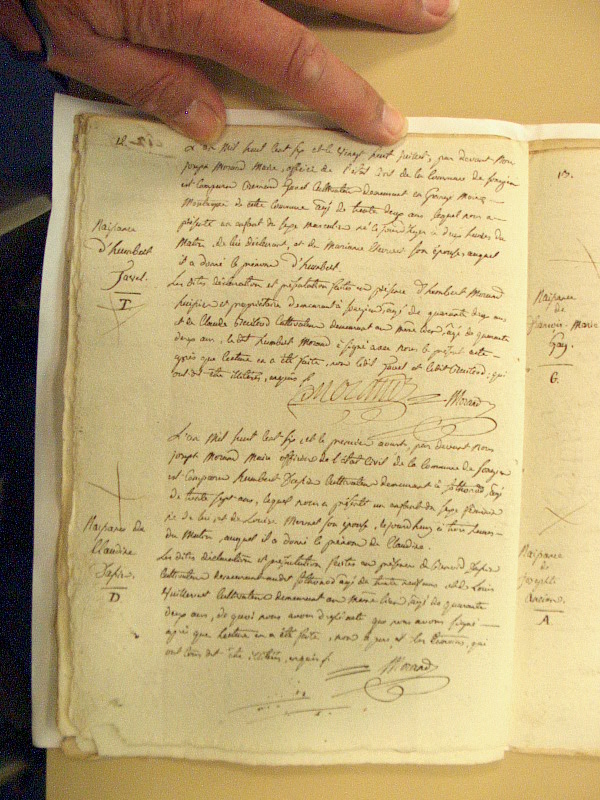 12.
L'an mil huit cent six et le vingt huit juillet, par devant nous
joseph Morand Maire, officier de l'état Civil de la Commune de
est comparu Bernard Javel Cultivateur demeurant en
de cette Commune âgé de trente deux ans, lequel nous a
présenté un enfant du sexe masculin né le jourd'huy à deux heures du
Matin, de lui déclarant, et de Marianne son épouse, auquel
il a donné le prénom d'humbert.
Les dites déclaration et présentation faites en présence d'humbert Morand
huissier et propriétaire demeurant à âgé de quarante deux ans
et de Claude Cultivateur demeurant au même lieu, âgé de quarante
deux ans, le dit humbert Morand a signé avec nous le présent acte
après que lecture en a été faite, non ledit Javel et ledit qui
ont dit être illitérés, enquis f.
Morand
Naissance
d'humbert
Javel.
T
L'an mil huit cent six, et le premier aoust, par devant nous
joseph Morand Maire officier de l'état Civil de la Commune de
est Comparu humbert Cultivateur demeurant à âgé
de trente sept ans, lequel nous a présenté un enfant du sexe féminin
né de lui, et de Louise son épouse, le jourd'huy à trois heures
du Matin, auquel il a donné le prénom de Claudine.
Les dites déclaration et présentation faites en présence de Bernard
Cultivateur demeurant audit âgé de trente neuf ans et de Louis
Cultivateur demeurant au même lieu âgé de quarante
deux ans, de quoi nous avons dressé acte que nous avons signé
après que Lecture en a été faite, non le père et les témoins, qui
ont tous dit être illitérés, enquis f.
Morand
Naissance de
Claudine
D
13.
Naissance
de
Marie
G.
Naissance
de
Joseph
A